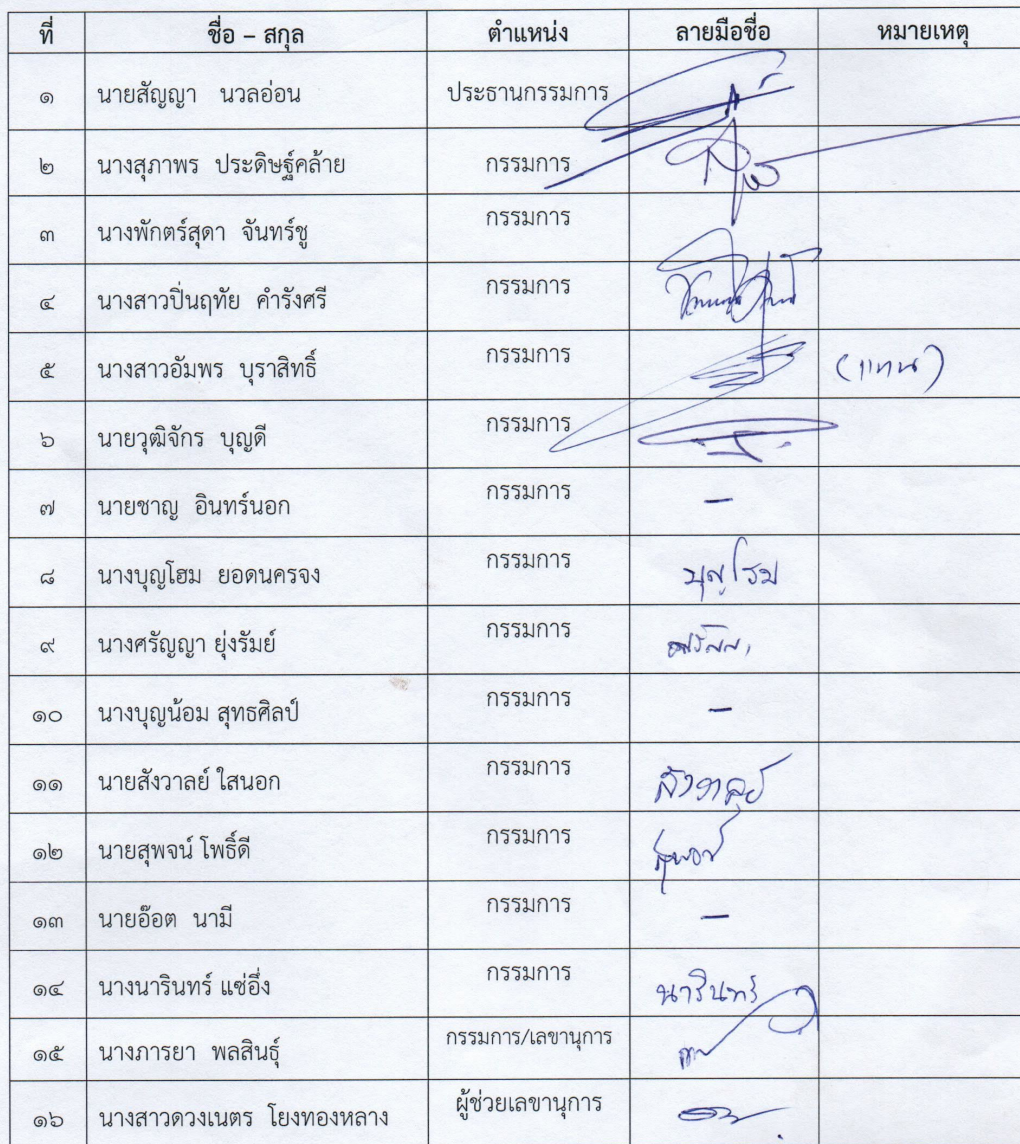 ที่ ชื่อ – สกุล ตำแหน่ง ลายมือชื่อ หมายเหตุ
๑ นายสัญญา นวลอ่อน ประธานกรรมการ
๒ นางสุภาพร ประดิษฐ์คล้าย กรรมการ
๓ นางพักตร์สุดา จันทร์ชู กรรมการ
๔ นางสาวปิ่นฤทัย คำรังศรี กรรมการ
๕ นางสาวอัมพร บุราสิทธิ์ กรรมการ (แทน)
๖ นายวุฒิจักร บุญดี กรรมการ
๗ นายชาญ อินทร์นอก กรรมการ –
๘ นางบุญโฮม ยอดนครจง กรรมการ บุญโฮม
๙ นางศรัญญา ยุ่งรัมย์ กรรมการ ศรัญญา
๑๐ นางบุญน้อม สุทธศิลป์ กรรมการ –
๑๑ นายสังวาลย์ ใสนอก กรรมการ สังวาลย์
๑๒ นายสุพจน์ โพธิ์ดี กรรมการ สุพจน์
๑๓ นายอ๊อต นามี กรรมการ –
๑๔ นางนารินทร์ แซ่อึ่ง กรรมการ นารินทร์
๑๕ นางภารยา พลสินธุ์ กรรมการ/เลขานุการ
๑๖ นางสาวดวงเนตร โยงทองหลาง ผู้ช่วยเลขานุการ